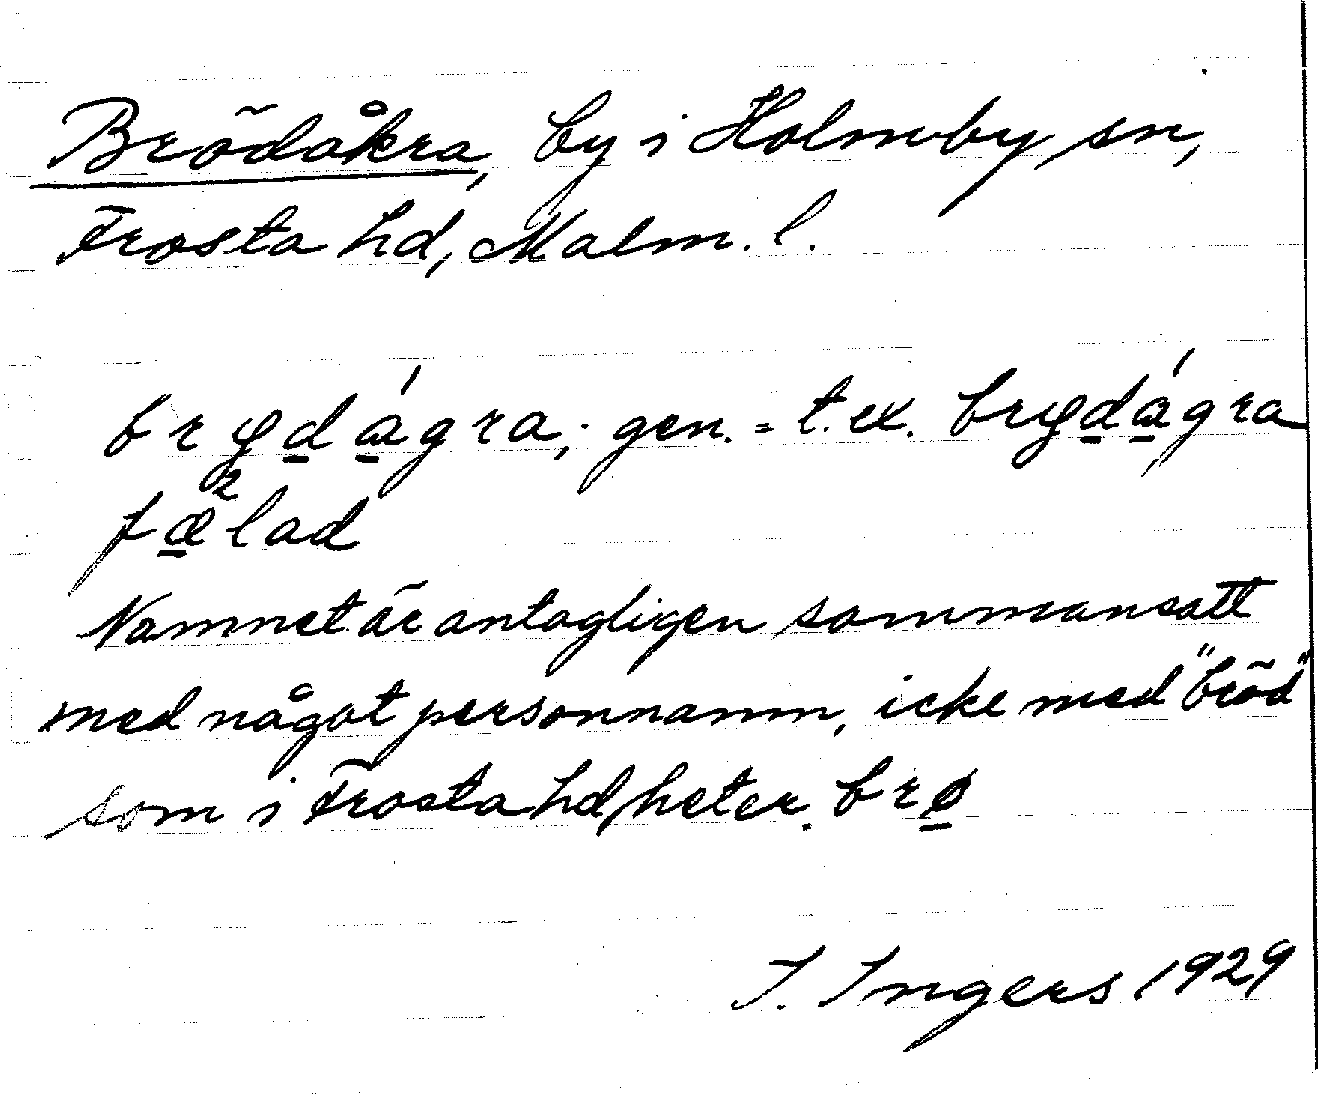 Brödåkra, by i Holmby sn,
Frosta hd, Malm. l.
brø̨dágra; gen. = t. ex. brø̨dágra
fæ̲²lad
Namnet är antagligen sammansatt
med något personnamn, icke med "bröd"
som i Frosta hd heter brø̲
I. Ingers 1929